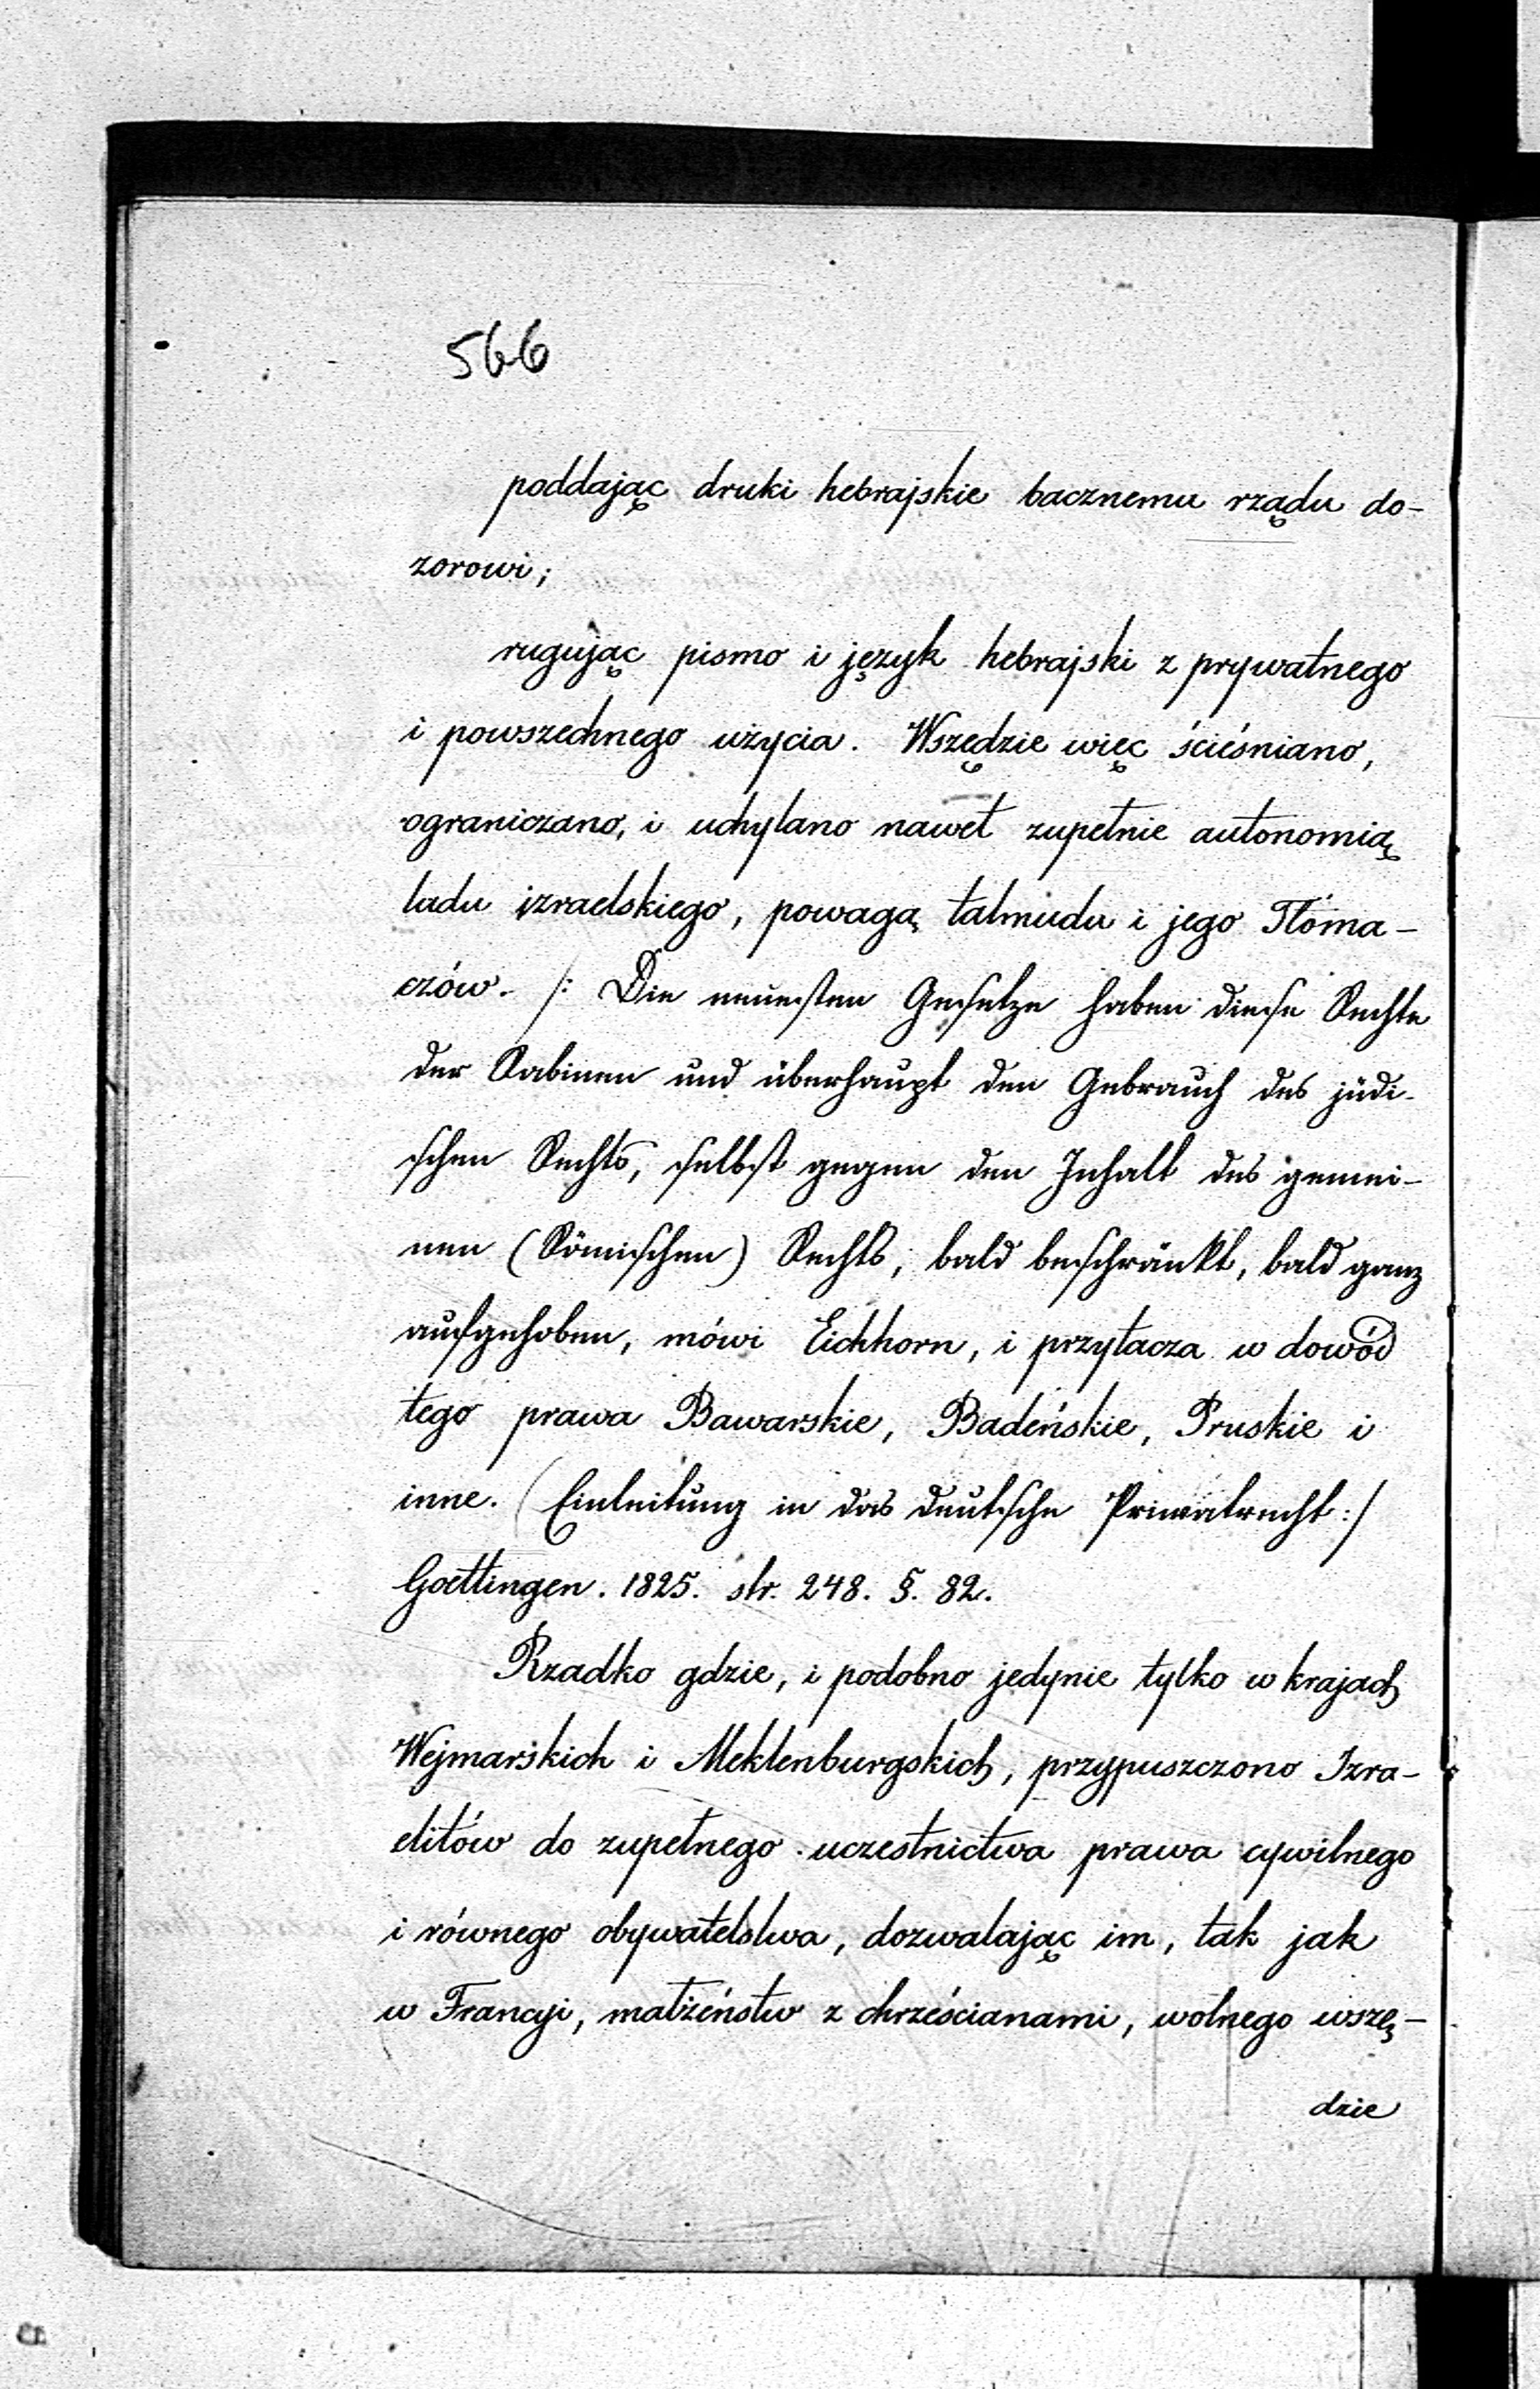 566
poddając druki hebrajskie bacznemu rządu do-
zorowi;
rugując pismo i język hebrajski z prywatnego
i powszechnego użycia. Wszędzie więc ścieśniano,
ograniczano, i uchylano nawet zupełnie autonomią
ladu izraelskiego, powagą talmudu i jego Tłóma-
czów. /: Die neuesten Gesetze haben diese Rechte
der Rabinen und überhaupt den Gebrauch des jüdi-
schen Rechts, selbst gegen den Inhalt des gemei-
nen (Römischen) Rechts, bald beschränkt, bald ganz
aufgehoben, mówi Eichhorn, i przytacza w dowód
tego prawa Bawarskie, Badeńskie, Pruskie i
inne. (Einleitung in das deutsche Privatrecht :/
Goettingen. 1825. str. 248. §. 82.
Rzadko gdzie, i podobno jedynie tylko w krajach
Wejmarskich i Meklenburgskich, przypuszczono Izra-
elitów do zupełnego uczestnictwa prawa cywilnego
i równego obywatelstwa, dozwalając im, tak jak
w Francyi, małżeństw z chrześcianami, wolnego wszę-
dzie